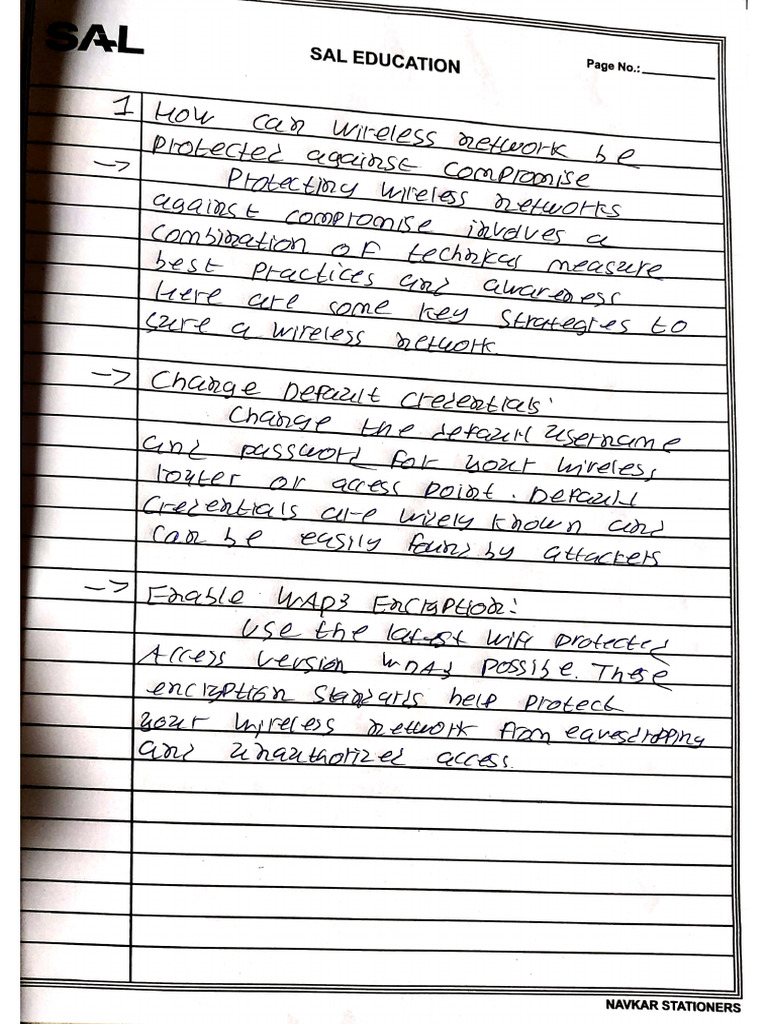 SAL
SAL EDUCATION
Page No.:
1 How can wireless network be
protected against compromise
→ Protecting wireless networks
against compromise involves a
combination of technical measure
best practices and awareness
Here are some key strategies to
sure a wireless network.
→ Change Default Credentials:
Change the default username
and password for your wireless
router or access point. Default
credentials are widely known and
can be easily found by attackers
→ Enable WAP3 Encryption:
Use the latest wifi protected
Access version WPA3 possible. These
encryption standards help protect
your wireless network from eavesdropping
and unauthorized access.
NAVKAR STATIONERS